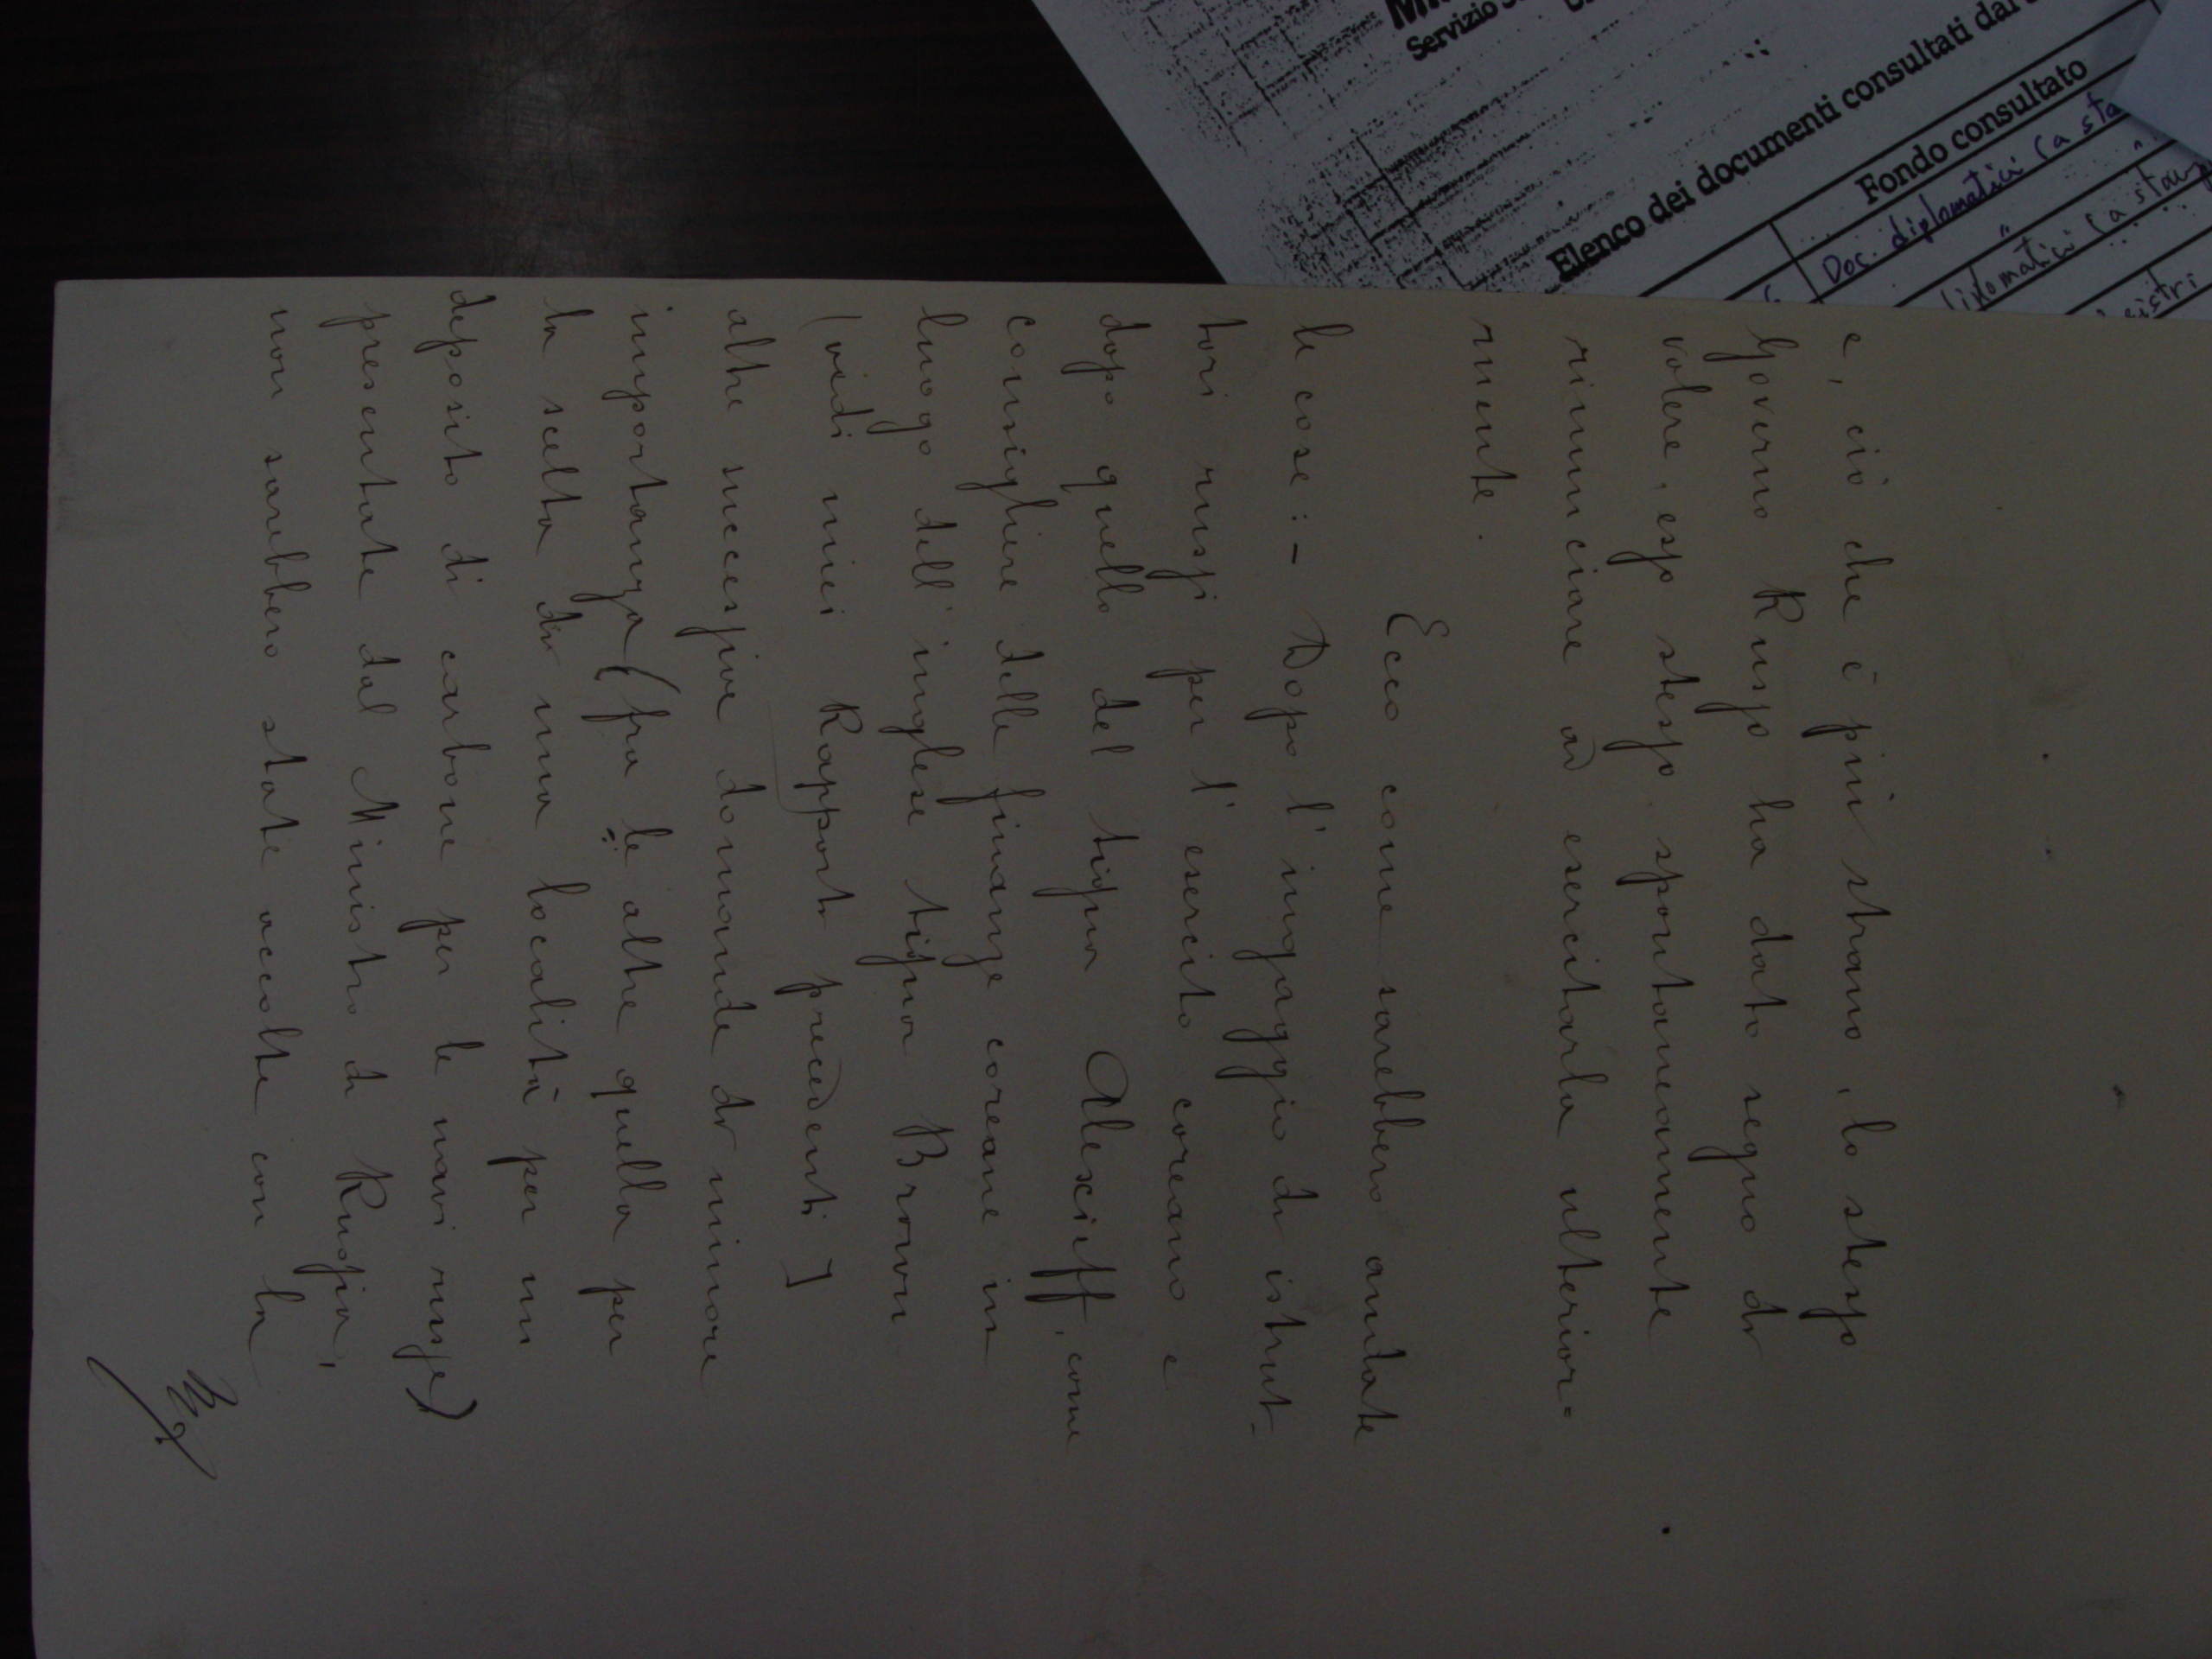 e, ciò che è più strano, lo stesso
Governo Russo ha dato segno di
volere, esso stesso spontaneamente
rinunciare ad esercitarla ulterior=
mente.
Ecco come sarebbero andate
le cose: - Dopo l'ingaggio di istrut-
tori russi per l'esercito coreano e
dopo quello del signor Alexieff, come
consigliere delle finanze coreane in
luogo dell'inglese signor Brown
(vedi miei Rapporti precedenti]
altre successive domande di minore
importanza (fra le altre quella per
la scelta di una località per un
deposito di carbone per le navi russe)
presentate dal Ministro di Russia,
non sarebbero state accolte con la
Servizio
Elenco dei documenti consultati dal
Fondo consultato
Doc. diplomatici (a sta
(a stam